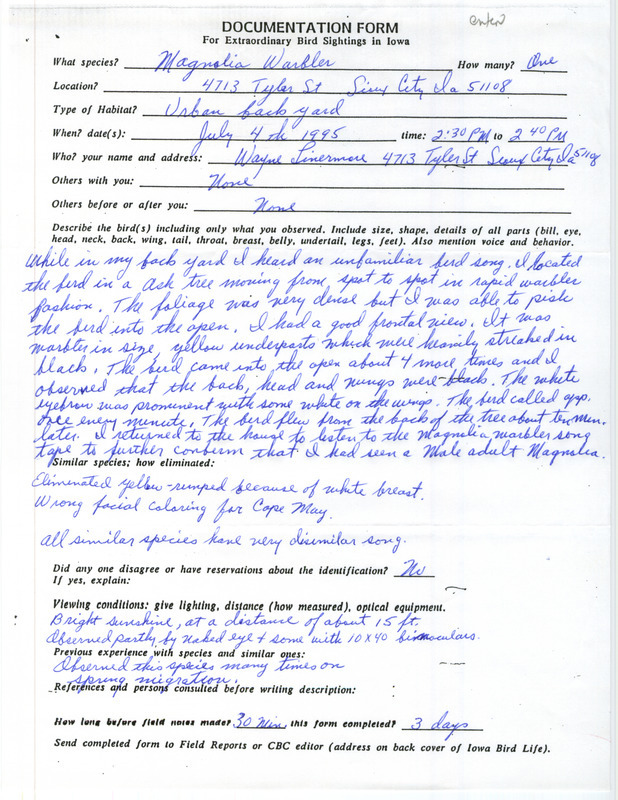 enter
DOCUMENTATION FORM
For Extraordinary Bird Sightings in Iowa
What species? Magnolia Warbler How many? One
Location? 4713 Tyler St Sioux City Ia 51108
Type of Habitat? Urban back yard
When? date(s): July 4th 1995 time: 2:30 PM to 2 40 PM
Who? your name and address: Wayne Livermore 4713 Tyler St Sioux City Ia 51108
Others with you: None
Others before or after you: None
Describe the bird(s) including only what you observed. Include size, shape, details of all parts (bill, eye,
head, neck, back, wing, tail, throat, breast, belly, undertail, legs, feet). Also mention voice and behavior.
While in my back yard I heard an unfamiliar bird song. I located
the bird in a Ash tree moving from spot to spot in rapid warbler
fashion. The foliage was very dense but I was able to pish
the bird into the open. I had a good frontal view. It was
warbler in size, yellow underparts which were heavily streaked in
black. The bird came into the open about 4 more times and I
observed that the back, head and wings were black. The white
eyebrow was prominent with some white on the wings. The bird called app.
once every minute. The bird flew from the back of the tree about ten min.
later. I returned to the house to listen to the Magnolia warbler song
tape to further confirm that I had seen a Male adult Magnolia.
Similar species; how eliminated:
Eliminated yellow-rumped because of white breast.
Wrong facial coloring for Cape May.
All similar species have very disimilar song.
Did any one disagree or have reservations about the identification? No
If yes, explain:
Viewing conditions: give lighting, distance (how measured), optical equipment.
Bright sunshine, at a distance of about 15 ft.
Observed partly by naked eye + some with 10 X 40 binoculars.
Previous experience with species and similar ones:
Observed this species many times on
spring migration.
References and persons consulted before writing description:
How long before field notes made? 30 Min. this form completed? 3 days
Send completed form to Field Reports or CBC editor (address on back cover of Iowa Bird Life).